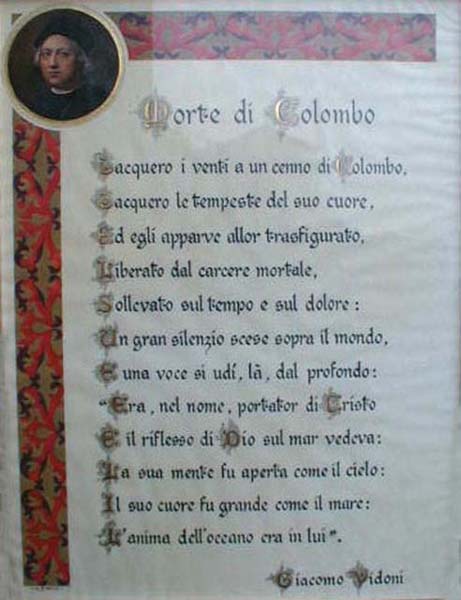 Morte di Colombo
Tacquero i venti a un cenno di Colombo,
Tacquero le tempeste del suo cuore,
Ed egli apparve allor trasfigurato,
Liberato dal carcere mortale,
Sollevato sul tempo e sul dolore:
Un gran silenzio scese sopra il mondo,
E una voce si udí, là, dal profondo:
"Era, nel nome, portator di Cristo
E il riflesso di Dio sul mar vedeva:
La sua mente fu aperta come il cielo:
Il suo cuore fu grande come il mare:
L'anima dell'oceano era in lui".
Giacomo Vidoni